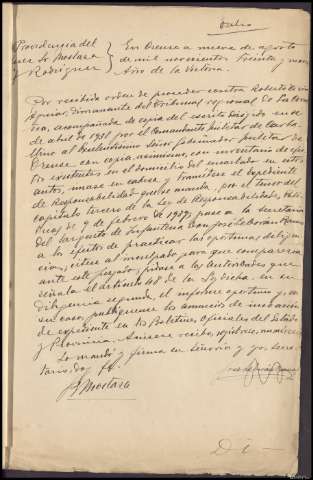 Providencia del
Juez Sr Mostaza
y Rodríguez
En Orense a nueve de agosto
de mil novecientos treinta y nueve
Año de la Victoria.
Por recibida orden de proceder contra Roberto
dimanante del Tribunal regional de
acompañada de copia del escrito dirigido en
de abril de 1938 por el Comandante militar de
al Excelentísimo Señor Gobernador militar de
Orense con copia asimismo, con inventario de
en el domicilio del inculpado en estos
autos, únase en cabeza y tramítese el expediente
de responsabilidad que se manda, por el tenor del
capítulo tercero de la Ley de Responsabilidades
de 9 de febrero de 1939, pase a la secretaría
del sargento de Infantería Don José
a los efectos de practicar las oportunas diligen
cias, cítese al inculpado para que comparezca
ante este juzgado, pídanse a las autoridades que
señala el artículo 48 de la Ley dicha, en su
diligencia segunda, el informe oportuno y, en
su caso, publíquense los anuncios de incoación
de expediente en los Boletines Oficiales del Estado
y Provincia. Acúsese recibo, regístrese,
Lo mandó y firma en Señoría y yo, secre
tario, doy fe.
Mostaza
Di —